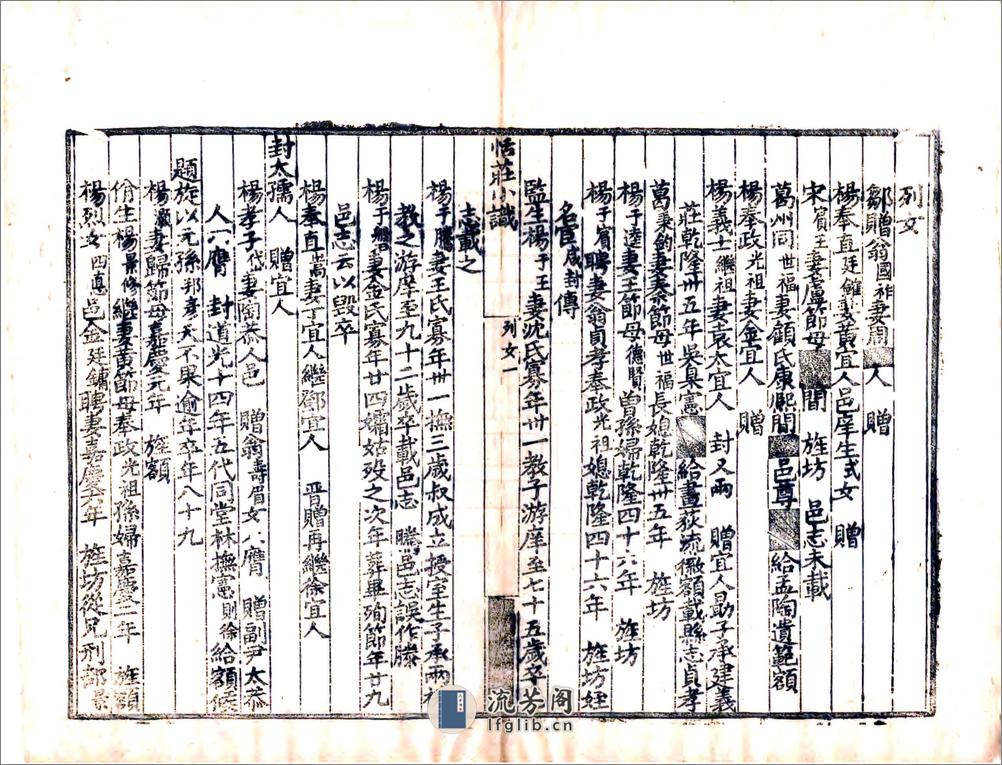 列女
鄒贈翁國祚妻周人 贈
楊奉直廷錐妻黃宜人邑庠生式女 贈
宋賓王妻盧節母 間 旌坊 邑志未載
葛州同世福妻顧氏康熙間邑尊給孟陶遺範額
楊奉政光祖妻金宜人 贈
楊義士繼祖妻袁太宜人 封又兩 贈宜人勗子承建義
莊乾隆卅五年吳臬憲給畫荻流徽額載縣志貞孝
葛秉鈞妻秦節母世福長媳乾隆卅五年 旌坊
楊于逵妻王節母德賢曾孫婦乾隆四十六年 旌坊
楊于賓聘妻翁貞孝奉政光祖媳乾隆四十六年 旌坊姪
名宦咸封傳
監生楊于王妻沈氏寡年卅一教子游庠至七十五歲卒
恬莊小識
列女一
志載之
楊于騰妻王氏寡年卅一撫三歲叔成立授室生子承兩
教之游庠至九十二歲卒載邑志 騰邑志誤作滕
楊于妻金氏寡年廿四孀姑歿之次年葬畢殉節年廿九
邑志云以毀卒
楊奉直嵩妻丁宜人繼鄒宜人 晉贈再繼徐宜人
封太孺人 贈宜人
楊孝子岱妻陶恭人邑 贈翁壽眉女八膺 贈副尹太恭
人六膺 封道光十四年五代同堂林撫憲則徐給額候
題旌以元孫邦彥夭不果逾年卒年八十九
楊妻歸節母嘉慶元年 旌額
佾生楊景修繼妻黃節母奉政光祖孫婦嘉慶二年 旌額
楊烈女四惠邑金廷鏞聘妻嘉慶六年 旌坊從兄刑部景
流芳阁
lfglib.cn